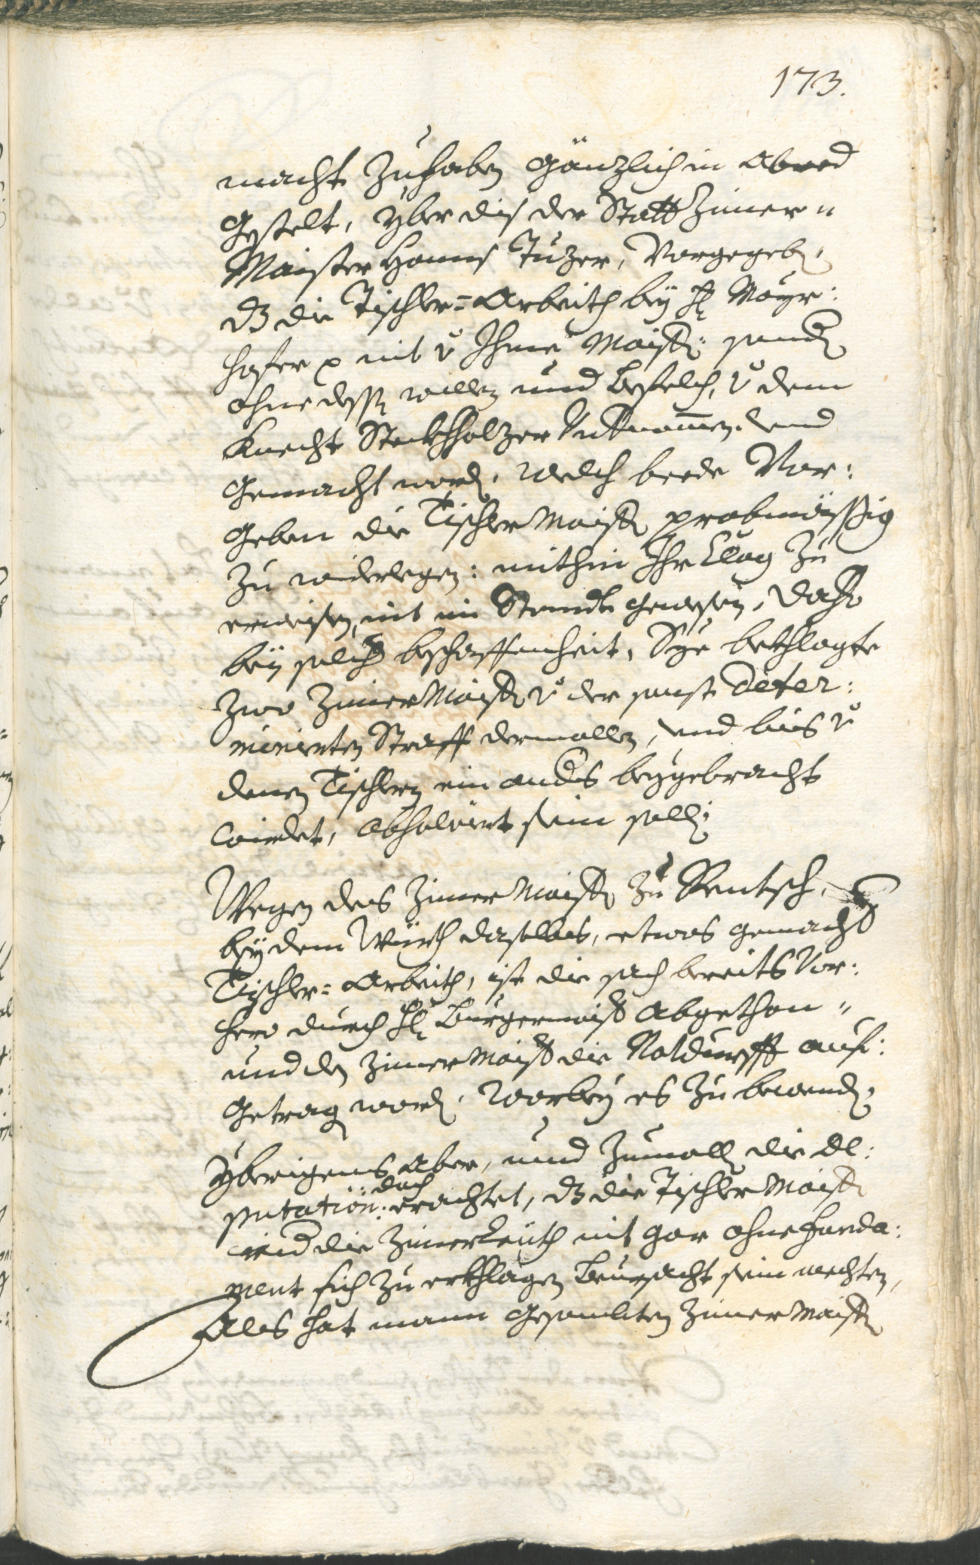 173.
macht zu haben gänzlich in Abred
gestelt, yber dis der Statt Zimer„
Maister Hanns Tuzer, Vorgegeb,
dz die Tischler=Arbeith bey H: Mayr:
hofer nit v Ihme Maistr: sondr
ohne dessen willen und Befelch, v dem
Knecht Stockholzer Undternomen und
gemacht word, welch beede Vor:
geben die Tischler Maistr probmässig
zu widerlegen: mithin Ihr Clag zu
erweisen, nit im Standt gewesen, dahr
bey solchr beschaffenheit, Sye beklagte
zwo Zimer Maistr v der sonst deter:
minierten Straff dermallen, und bis v
denen Tischlern ein anders beygebracht
wirdet, absolviert sein solln;
Wegen des Zimer Maistr zu Rentsch,
bey dem Würth daselbs, etwas gemacht
Tischler=Arbeith, ist die sach bereits Vor:
hero durch H: Burgermaistr Abgethon„
und dem Zimer Maistr die Notdurfft auf:
getragen word, Worbey es zu bewend;
Yberigens Aber, umb zumalln die de:
putation: doch erachtet, dz die Tischler Maistr
wid die Zimerleuth nit gar ohne funda:
ment sich zu erklagen Beursacht sein mechten,
Als hat mann gesambten Zimer Maistr